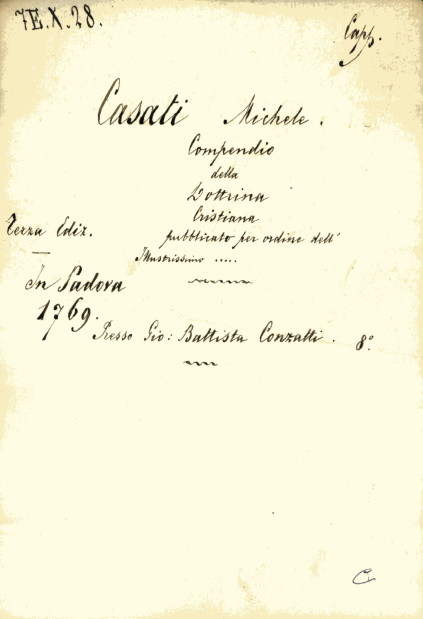 7E.X.28.
Capp.
Casati Michele.
Compendio
della
Dottrina
Cristiana
Terza Ediz.
pubblicato per ordine dell'
Illustrissimo .....
In Padova
1769.
Presso Gio: Battista Conzatti. 8°
C